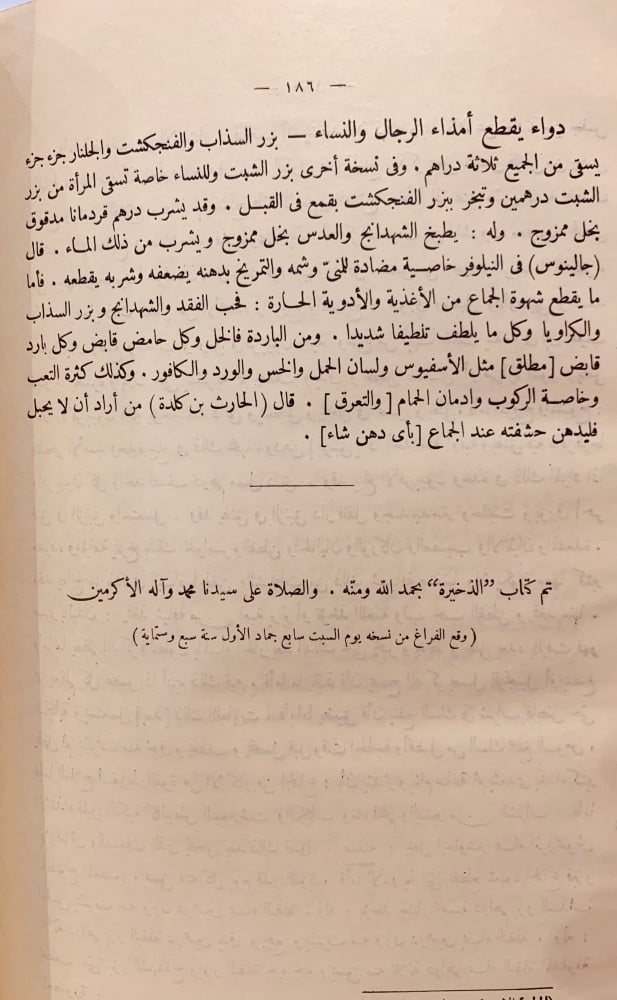 — ١٨٦ —
دواء يقطع أمذاء الرجال والنساء — بزر السذاب والفنجكشت والجلنار جزء جزء
يسقى من الجميع ثلاثة دراهم . وفى نسخة أخرى بزر الشبت وللنساء خاصة تسقى المرأة من بزر
الشبت درهمين وتبخر ببزر الفنجكشت بقمع فى القبـل . وقد يشرب درهم قردمانا مدقوق
بخل ممزوج . وله : يطبخ الشهدانج والعدس بخل ممزوج ويشرب من ذلك المـاء . قال
(جالينوس) فى النيلوفر خاصـية مضادة للمنىّ وشمه والتمريخ بدهنه يضعفه وشربه يقطعه . فأما
ما يقطع شهوة الجماع من الأغذية والأدوية الحـارة : فحب الفقد والشهدانج وبزر السذاب
والكراويا وكل ما يلطف تلطيفا شديدا . ومن الباردة فالخل وكل حامض قابض وكل بارد
قابض [مطلق] مثل الأسفيوس ولسان الحمل والخس والورد والكافور . وكذلك كثرة التعب
وخاصـة الركوب وادمان الحمام [والتعرق] . قال (الحارث بن كلدة) من أراد أن لا يحبل
فليدهن حشفته عند الجماع [بأى دهن شاء] .
تم كتاب ”الذخيرة“ بحمد الله ومنّه . والصلاة على سيدنا محمد وآله الأكرمين
(وقع الفراغ من نسخه يوم السبت سابع جماد الأول سنة سبع وستماية)